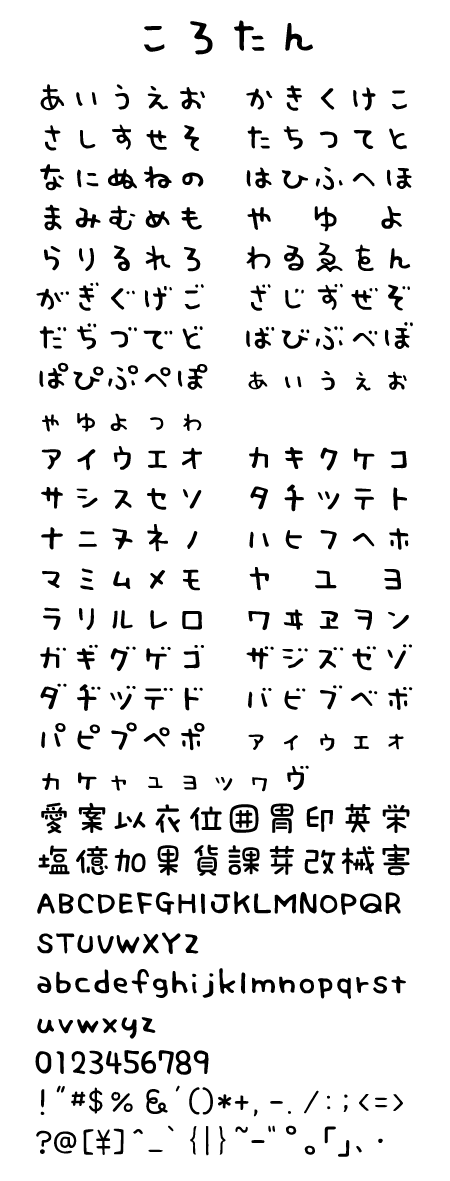 ころたん
あいうえお かきくけこ
さしすせそ たちつてと
なにぬねの はひふへほ
まみむめも や ゆ よ
らりるれろ わゐゑをん
がぎぐげご ざじずぜぞ
だぢづでど ばびぶべぼ
ぱぴぷぺぽ ぁぃぅぇぉ
ゃゅょっゎ
アイウエオ カキクケコ
サシスセソ タチツテト
ナニヌネノ ハヒフヘホ
マミムメモ ヤ ユ ヨ
ラリルレロ ワヰヱヲン
ガギグゲゴ ザジズゼゾ
ダヂヅデド バビブベボ
パピプペポ ァィゥェォ
ヵヶャュョッヮヴ
愛案以衣位囲胃印英栄
塩億加果貨課芽改械害
ABCDEFGHIJKLMNOPQR
STUVWXYZ
abcdefghijklmnopqrst
uvwxyz
0123456789
!"#$%&'()*+,-./:;<=>
?@[¥]^_`{|}~-゛゜。「」、・